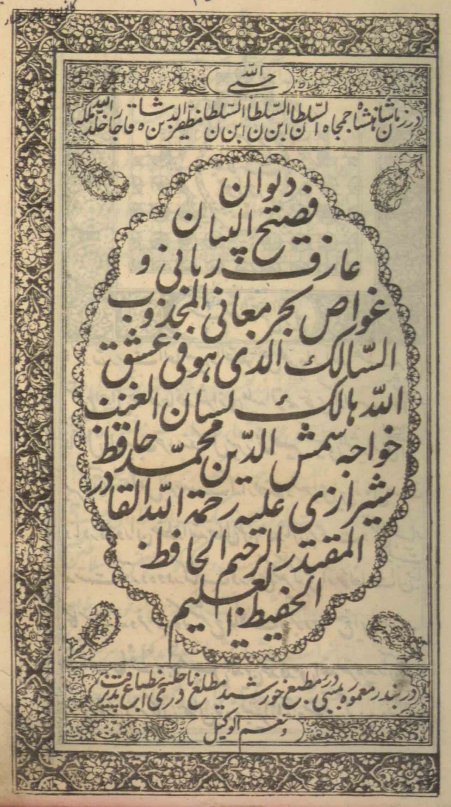 حسبی الله
در زمان شاهنشاه جمجاه السلطان ابن السلطان ابن السلطان مظفرالدین شاه قاجار خلد الله ملکه
دیوان
فصیح البیان
عارف ربانی و
غواص بحر معانی المجذوب
السّالک الذی هو فی عشق
الله هالک لسان الغیب
خواجه شمس الدّین محمّد حافظ
شیرازی علیه رحمة الله القادر
المقتدر الرحیم الحافظ
الحفیظ العلیم
در بندر معموره بمبئی در مطبع خورشید مطلع ناحلیه انطباع پذیرفت
و نعم الوکیل